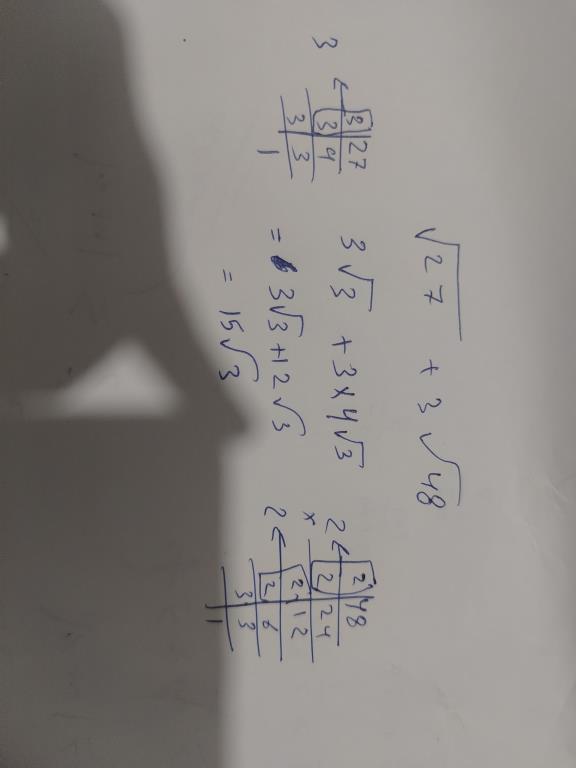 √27 + 3√48
3√3 + 3×4√3
= 3√3+12√3
= 15√3
3 ←
3 | 27
3 | 9
3 | 3
1
2 ←
×
2 ←
2 | 48
2 | 24
2 | 12
2 | 6
3 | 3
1